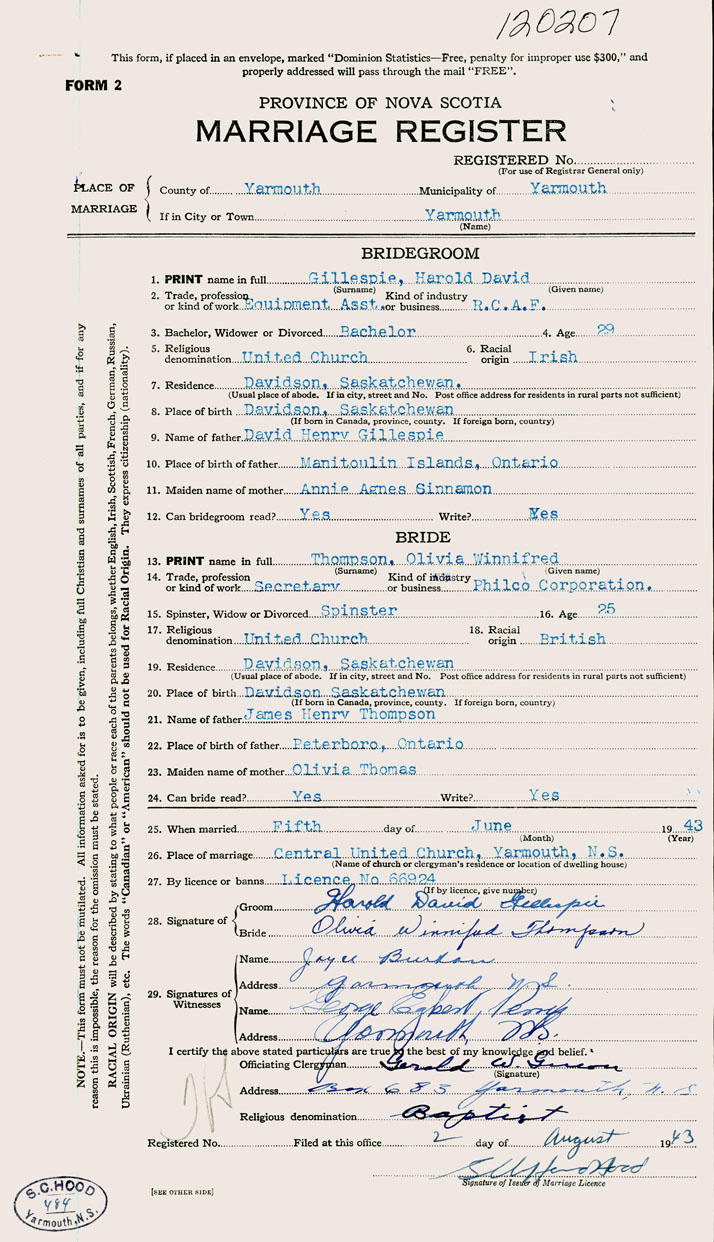 120207
This form, if placed in an envelope, marked "Dominion Statistics—Free, penalty for improper use $300," and
properly addressed will pass through the mail "FREE".
FORM 2
PROVINCE OF NOVA SCOTIA
MARRIAGE REGISTER
REGISTERED No.
(For use of Registrar General only)
PLACE OF MARRIAGE
County of Yarmouth Municipality of Yarmouth
If in City or Town Yarmouth
(Name)
BRIDEGROOM
1. PRINT name in full Gillespie, Harold David
(Surname) (Given name)
2. Trade, profession or kind of work Equipment Asst. Kind of industry or business R.C.A.F.
3. Bachelor, Widower or Divorced Bachelor 4. Age 29
5. Religious denomination United Church 6. Racial origin Irish
7. Residence Davidson, Saskatchewan.
(Usual place of abode. If in city, street and No. Post office address for residents in rural parts not sufficient)
8. Place of birth Davidson, Saskatchewan
(If born in Canada, province, county. If foreign born, country)
9. Name of father David Henry Gillespie
10. Place of birth of father Manitoulin Islands, Ontario
11. Maiden name of mother Annie Agnes Sinnamon
12. Can bridegroom read? Yes Write? Yes
BRIDE
13. PRINT name in full Thompson, Olivia Winnifred
(Surname) (Given name)
14. Trade, profession or kind of work Secretary Kind of industry or business Philco Corporation.
15. Spinster, Widow or Divorced Spinster 16. Age 25
17. Religious denomination United Church 18. Racial origin British
19. Residence Davidson, Saskatchewan
(Usual place of abode. If in city, street and No. Post office address for residents in rural parts not sufficient)
20. Place of birth Davidson Saskatchewan
(If born in Canada, province, county. If foreign born, country)
21. Name of father James Henry Thompson
22. Place of birth of father Peterboro, Ontario
23. Maiden name of mother Olivia Thomas
24. Can bride read? Yes Write? Yes
25. When married Fifth day of June 1943
(Month) (Year)
26. Place of marriage Central United Church, Yarmouth, N.S.
(Name of church or clergyman's residence or location of dwelling house)
27. By licence or banns Licence No 66924
(If by licence, give number)
28. Signature of
Groom Harold David Gillespie
Bride Olivia Winnifred Thompson
29. Signatures of Witnesses
Name Joyce
Address Yarmouth N.S.
Name George Egbert
Address Yarmouth, N.S.
I certify the above stated particulars are true to the best of my knowledge and belief.
Officiating Clergyman Gerald W.
(Signature)
Address Box 685 Yarmouth, N.S
Religious denomination Baptist
Registered No. Filed at this office 2 day of August 1943
Signature of Issuer of Marriage Licence
[SEE OTHER SIDE]
S.C. HOOD
484
Yarmouth, N.S.
NOTE.—This form must not be mutilated. All information asked for is to be given, including full Christian and surnames of all parties, and if for any
reason this is impossible, the reason for the omission must be stated.
RACIAL ORIGIN will be described by stating to what people or race each of the parents belongs, whether English, Irish, Scottish, French, German, Russian,
Ukrainian (Ruthenian), etc. The words "Canadian" or "American" should not be used for Racial Origin. They express citizenship (nationality).